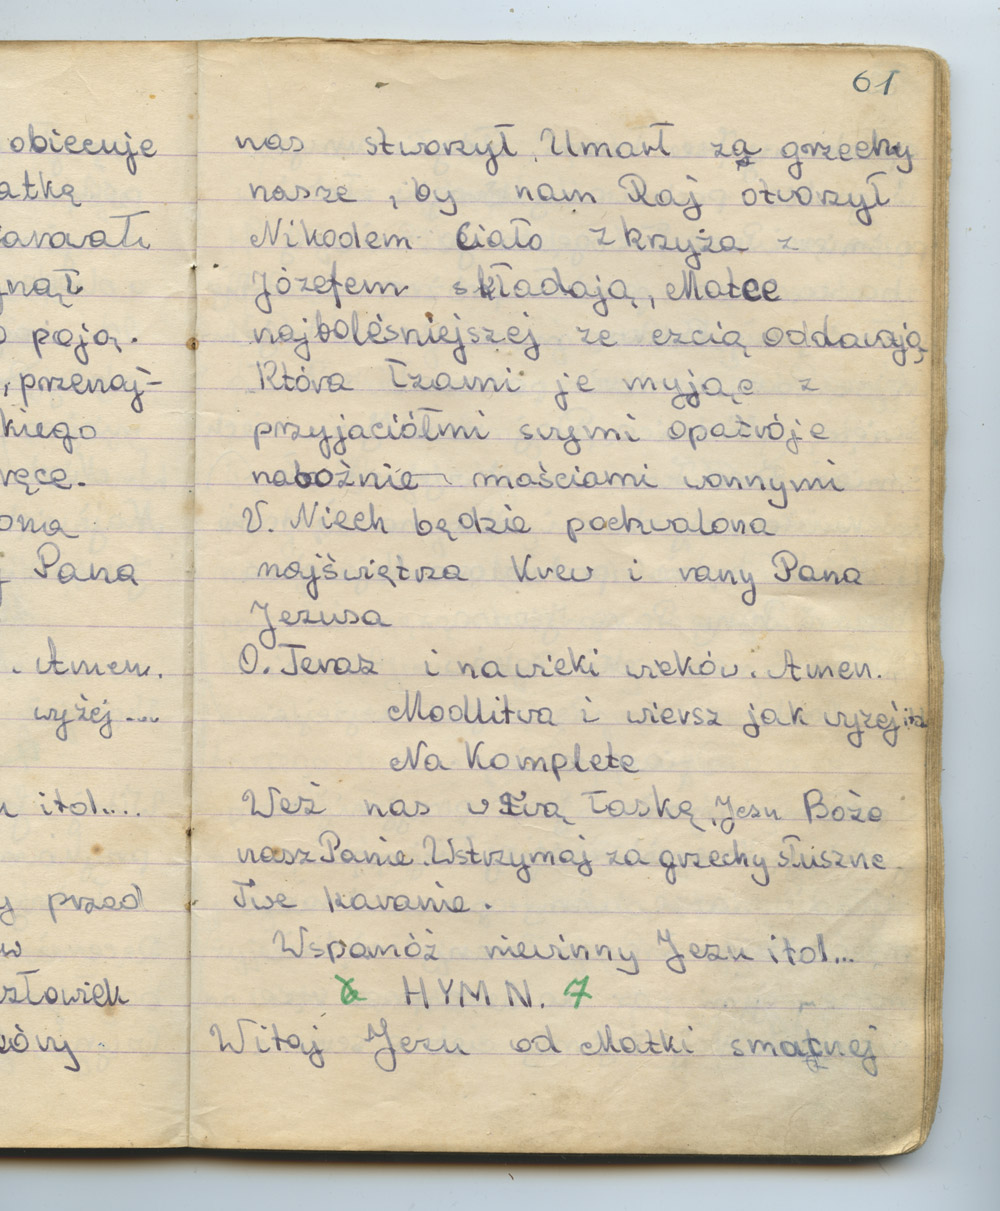 obiecuje
atką
arowali
nął
pają.
, przenaj-
kiego
ręce.
ona
Pana
. Amen.
wyżej ...
itd....
przed
w
złowiek
tóry
61
nas stworzył. Umarł za grzechy
nasze, by nam Raj otworzył
Nikodem Ciało z krzyża z
Józefem składają, Matce
najboleśniejszej ze czcią oddawają,
Która łzami je myjąc z
przyjaciółmi swymi opatróje
nabożnie maściami wonnymi
V. Niech będzie pochwalona
najświętrza Krew i rany Pana
Jezusa
O. Teraz i na wieki wieków. Amen.
Modlitwa i wiersz jak wyżej itd
Na Kompletę
Weź nas w Twą łaskę, Jezu Boże
nasz Panie. Wstrzymaj za grzechy słuszne
Twe karanie.
Wspomóż niewinny Jezu itd...
HYMN. 7
Witaj Jezu od Matki smutnej